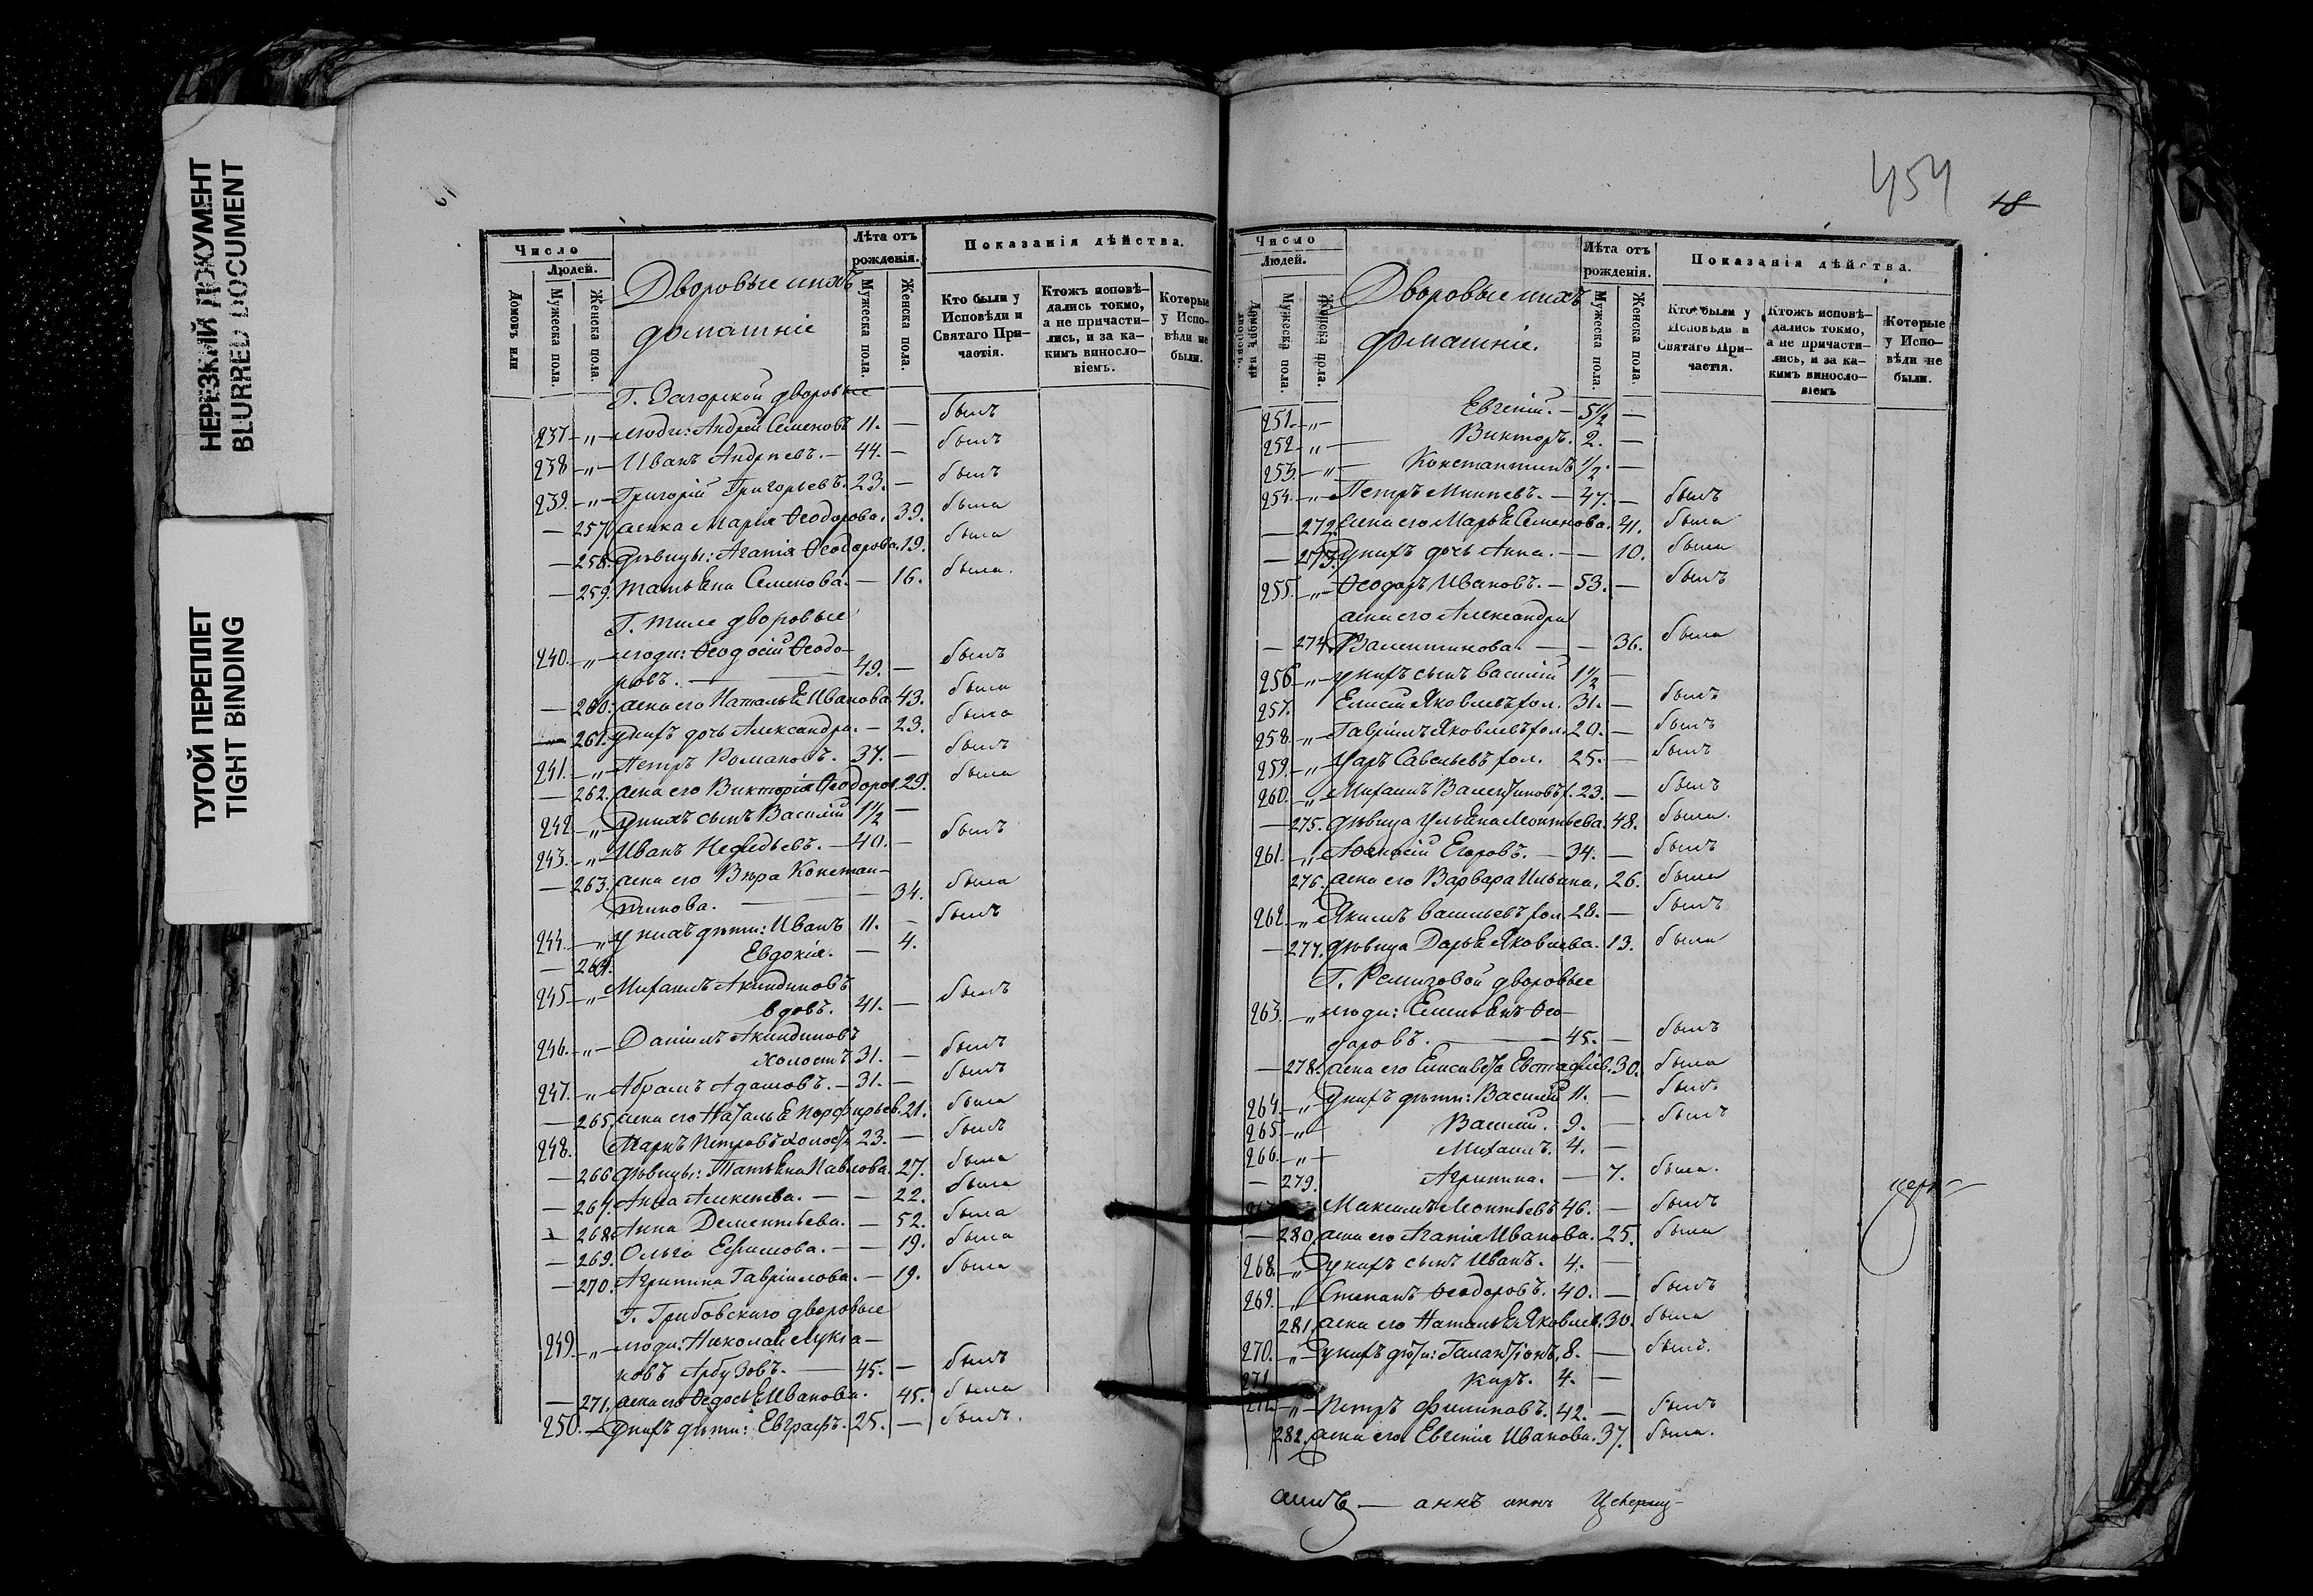 НЕРЕЗКИЙ ДОКУМЕНТ
BLURRED DOCUMENT
ТУГОЙ ПЕРЕПЛЕТ
TIGHT BINDING
Число
Людей.
Домовъ или
Мужеска пола.
Женска пола.
Дворовые ихъ
домашніе
Лѣта отъ
рожденія.
Мужеска пола.
Женска пола.
Показанія дѣйства.
Кто были у
Исповѣди и
Святаго При-
частія.
Ктожъ исповѣ-
дались токмо,
а не причасти-
лись, и за ка-
кимъ винословіемъ.
Которые
у Испо-
вѣди не
были.
Г. Загорской дворовые
237. „ люди: Андрей Семеновъ 11. — былъ
238 „ Иванъ Андреевъ. — 44. — былъ
239. „ Григорій Григорьевъ. 23. — былъ
— 257. женка Марія Ѳеодорова. 39. была
— 258. дѣвицы: Агапія Ѳеодорова. 19. была
— 259. Татьяна Семенова. — 16. была.
Г. Тиле дворовые
240. „ люди: Ѳеодосій Ѳеодо-
ровъ. — 49. — былъ
— 260. жена его Наталья Иванова 43. была
— 261. у нихъ дочь Александра. — 23. была
241. „ Петръ Романовъ. 37. — былъ
— 262. жена его Викторія Ѳеодоров. 29. была
242. „ у нихъ сынъ Василій 1 1/2 —
243. „ Иванъ Нефедьевъ. — 40. — былъ
— 263. жена его Вѣра Констан-
тинова. — 34. была
244. „ у нихъ дѣти: Иванъ 11. — былъ
— 264. Евдокія. — 4.
245. „ Михаилъ Акиндиновъ
вдовъ. 41. — былъ
246. „ Даніилъ Акиндиновъ
холостъ. 31. — былъ
247. „ Абрамъ Адамовъ. — 31. — былъ
— 265. жена его Наталья Порфирьев. 21. была
248. Маркъ Петровъ холостъ 23. — былъ
— 266 дѣвицы: Татьяна Павлова. 27. была
— 267. Анна Алексѣева. — — 22. была
— 268. Анна Дементьева. — 52. была
— 269. Ольга Ефимова. — — 19. была
— 270. Агрипина Гавріилова. — 19. была
Г. Грибовскаго дворовые
249. „ люди: Николай Лукіа-
новъ Арбузовъ. — 45. — былъ
— 271. жена его Ѳедосья Иванова. 45. была
250. — у нихъ дѣти: Евграфъ. 25. — былъ.
454
18
Число
Людей.
Мужеска пола.
Женска пола.
Дворовые ихъ
домашніе.
Лѣта отъ
рожденія.
Мужеска пола.
Женска пола.
Показанія дѣйства.
Кто были у
Исповѣди и
Святаго При-
частія.
Ктожъ исповѣ-
дались токмо,
а не причасти-
лись, и за ка-
кимъ винословіемъ
Которые
у Испо-
вѣди не
были.
251. „ Евгеній. — 5 1/2 —
252. „ Викторъ. 2. —
253. „ Константинъ 1/2. —
254. „ Петръ Минѣевъ. — 47. — былъ
— 272. жена его Марья Семенова. 41. была
— 273. у нихъ дочь Анна. — — 10. была
255. „ Ѳеодоръ Ивановъ. — 53. — былъ
жена его Александра
— 274. Валентинова. — — 36. была
256 „ у нихъ сынъ Василій 1 1/2 —
257. Елисей Яковлевъ хол. 31. — былъ
258. „ Гавріилъ Яковлевъ хол. 20. — былъ
259. „ Уаръ Савельевъ хол. 25. — былъ
260. „ Михаилъ Валентиновъ х. 23. — былъ
— 275. дѣвица Ульяна Леонтьева. 48. была.
261. „ Аѳанасій Егоровъ. — 34. — былъ
276. жена его Варвара Ильина. 26. была
262. „ Якимъ Васильевъ хол. 28. — былъ
— 277. дѣвица Дарья Яковлева. 13. была
Г. Ремизовой дворовые
263. „ люди: Емельянъ Ѳео-
доровъ. — 45. — былъ
— 278. жена его Елисавета Евстафіев. 30. была
264. „ у нихъ дѣти: Василій 11. — былъ
265 „ Василій. 9. — былъ
266. „ Михаилъ. 4. —
— 279. Агрипина. — 7. была.
Максимъ Леонтьевъ 46. — былъ
— 280. жена его Агапія Иванова. 25. была
268. „ у нихъ сынъ Иванъ. 4. —
269. „ Степанъ Ѳеодоровъ. 40. — былъ
281. жена его Наталья Яковлев. 30. была
270. „ у нихъ дѣти: Галактіонъ, 8. — былъ.
271. Киръ. 4. —
272. „ Петръ Филиповъ. 42. — былъ
282. жена его Евгенія Иванова. 37. была.